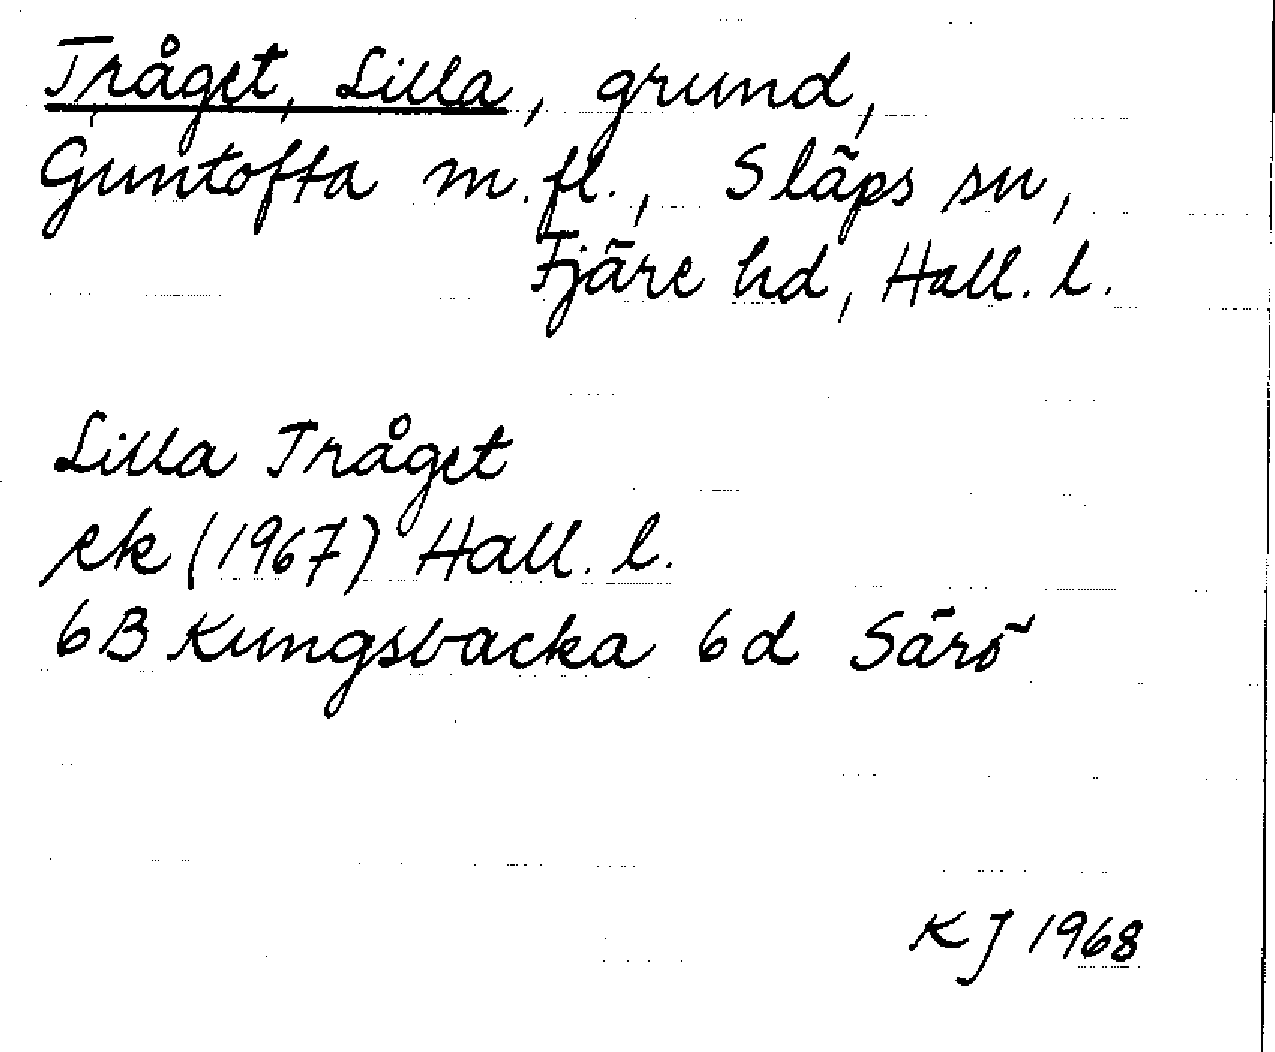 Tråget, Lilla, grund,
Guntofta m.fl., Släps sn,
Fjäre hd, Hall. l.
Lilla Tråget
ek (1967) Hall. l.
6B Kungsbacka 6d Särö
KJ 1968